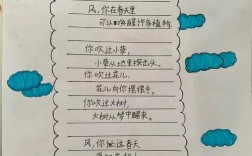 风,你在春天里
可以唤醒许多植物
你吹过小草,
小草从地里探出头。
你吹过花儿,
花儿向你摆摆手。
你吹过大树,
大树从梦中醒来。
风,你是春天